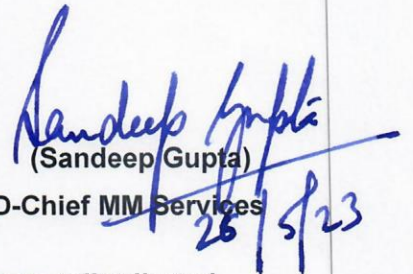 Sandeep Gupta
(Sandeep Gupta)
D-Chief MM Services
26/5/23